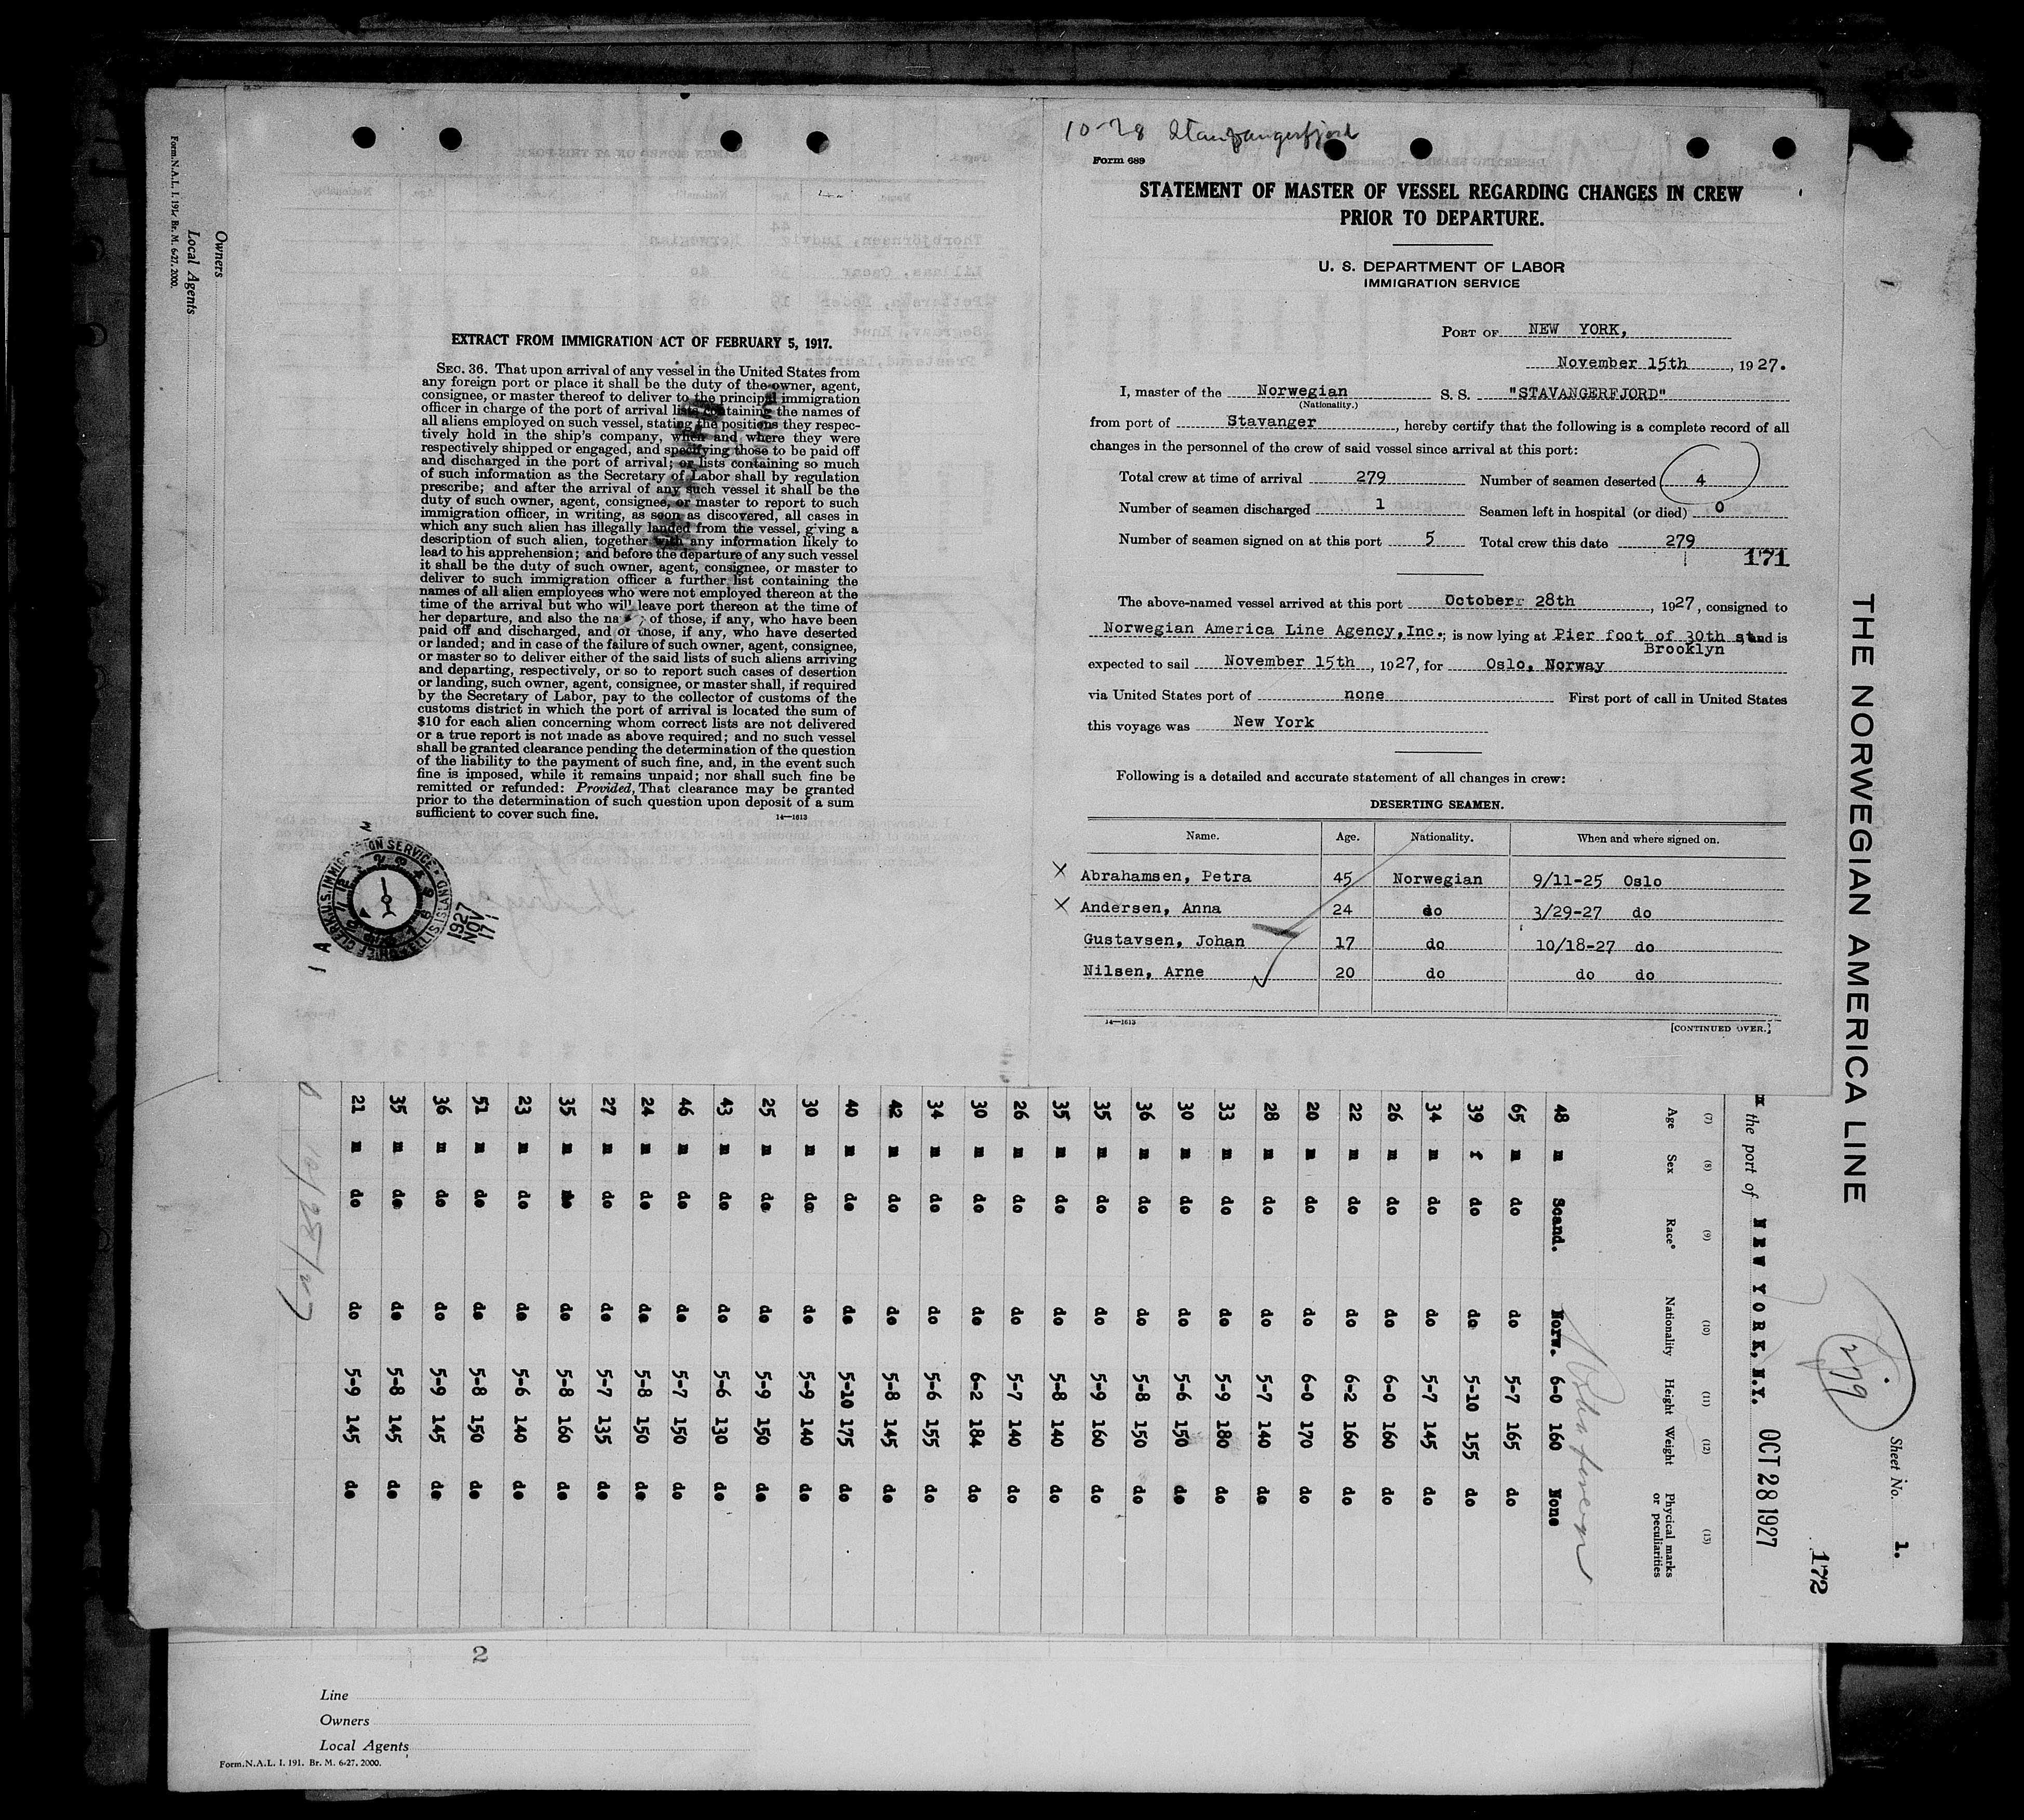 10-28 Stavangerfjord
Form 689
STATEMENT OF MASTER OF VESSEL REGARDING CHANGES IN CREW
PRIOR TO DEPARTURE.
U. S. DEPARTMENT OF LABOR
IMMIGRATION SERVICE
PORT OF NEW YORK,
November 15th, 1927.
I, master of the Norwegian S. S. "STAVANGERFJORD"
(Nationality.)
from port of Stavanger, hereby certify that the following is a complete record of all
changes in the personnel of the crew of said vessel since arrival at this port:
Total crew at time of arrival 279 Number of seamen deserted 4
Number of seamen discharged 1 Seamen left in hospital (or died) 0
Number of seamen signed on at this port 5 Total crew this date 279
171
The above-named vessel arrived at this port October 28th, 1927, consigned to
Norwegian America Line Agency, Inc.; is now lying at Pier foot of 30th st and is
Brooklyn
expected to sail November 15th, 1927, for Oslo, Norway
via United States port of none First port of call in United States
this voyage was New York
Following is a detailed and accurate statement of all changes in crew:
DESERTING SEAMEN.
Name. Age. Nationality. When and where signed on.
X Abrahamsen, Petra 45 Norwegian 9/11-25 Oslo
X Andersen, Anna 24 do 3/29-27 do
Gustavsen, Johan 17 do 10/18-27 do
Nilsen, Arne 20 do do do
14—1613
[CONTINUED OVER.]
EXTRACT FROM IMMIGRATION ACT OF FEBRUARY 5, 1917.
SEC. 36. That upon arrival of any vessel in the United States from
any foreign port or place it shall be the duty of the owner, agent,
consignee, or master thereof to deliver to the principal immigration
officer in charge of the port of arrival lists containing the names of
all aliens employed on such vessel, stating the positions they respec-
tively hold in the ship's company, when and where they were
respectively shipped or engaged, and specifying those to be paid off
and discharged in the port of arrival; or lists containing so much
of such information as the Secretary of Labor shall by regulation
prescribe; and after the arrival of any such vessel it shall be the
duty of such owner, agent, consignee, or master to report to such
immigration officer, in writing, as soon as discovered, all cases in
which any such alien has illegally landed from the vessel, giving a
description of such alien, together with any information likely to
lead to his apprehension; and before the departure of any such vessel
it shall be the duty of such owner, agent, consignee, or master to
deliver to such immigration officer a further list containing the
names of all alien employees who were not employed thereon at the
time of the arrival but who will leave port thereon at the time of
her departure, and also the na of those, if any, who have been
paid off and discharged, and of those, if any, who have deserted
or landed; and in case of the failure of such owner, agent, consignee,
or master so to deliver either of the said lists of such aliens arriving
and departing, respectively, or so to report such cases of desertion
or landing, such owner, agent, consignee, or master shall, if required
by the Secretary of Labor, pay to the collector of customs of the
customs district in which the port of arrival is located the sum of
$10 for each alien concerning whom correct lists are not delivered
or a true report is not made as above required; and no such vessel
shall be granted clearance pending the determination of the question
of the liability to the payment of such fine, and, in the event such
fine is imposed, while it remains unpaid; nor shall such fine be
remitted or refunded: Provided, That clearance may be granted
prior to the determination of such question upon deposit of a sum
sufficient to cover such fine.
14—1613
1927
NOV
17
THE NORWEGIAN AMERICA LINE
Sheet No. 1.
279
172
the port of NEW YORK, N.Y. OCT 28 1927
(7) (8) (9) (10) (11) (12) (13)
Age Sex Race* Nationality Height Weight Physical marks
or peculiarities
48 m Scand. Norw. 6-0 160 None
65 m do do 5-7 165 do
39 f do do 5-10 155 do
34 m do do 5-7 145 do
26 m do do 6-0 160 do
22 m do do 6-2 160 do
20 m do do 6-0 170 do
28 m do do 5-7 140 do
33 m do do 5-9 180 do
30 m do do 5-6 150 do
36 m do do 5-8 150 do
35 m do do 5-9 160 do
35 m do do 5-8 140 do
26 m do do 5-7 140 do
30 m do do 6-2 184 do
34 m do do 5-6 155 do
42 m do do 5-8 145 do
40 m do do 5-10 175 do
30 m do do 5-9 140 do
25 m do do 5-9 150 do
43 m do do 5-6 130 do
46 m do do 5-7 150 do
24 m do do 5-8 150 do
27 m do do 5-7 135 do
35 m do do 5-8 160 do
23 m do do 5-6 140 do
51 m do do 5-8 150 do
36 m do do 5-9 145 do
35 m do do 5-8 145 do
21 m do do 5-9 145 do
10/28/27
Owners
Local Agents
Form.N.A.L. I. 191. Br. M. 6-27. 2000.
2
Line
Owners
Local Agents
Form.N.A.L. I. 191. Br. M. 6-27. 2000.